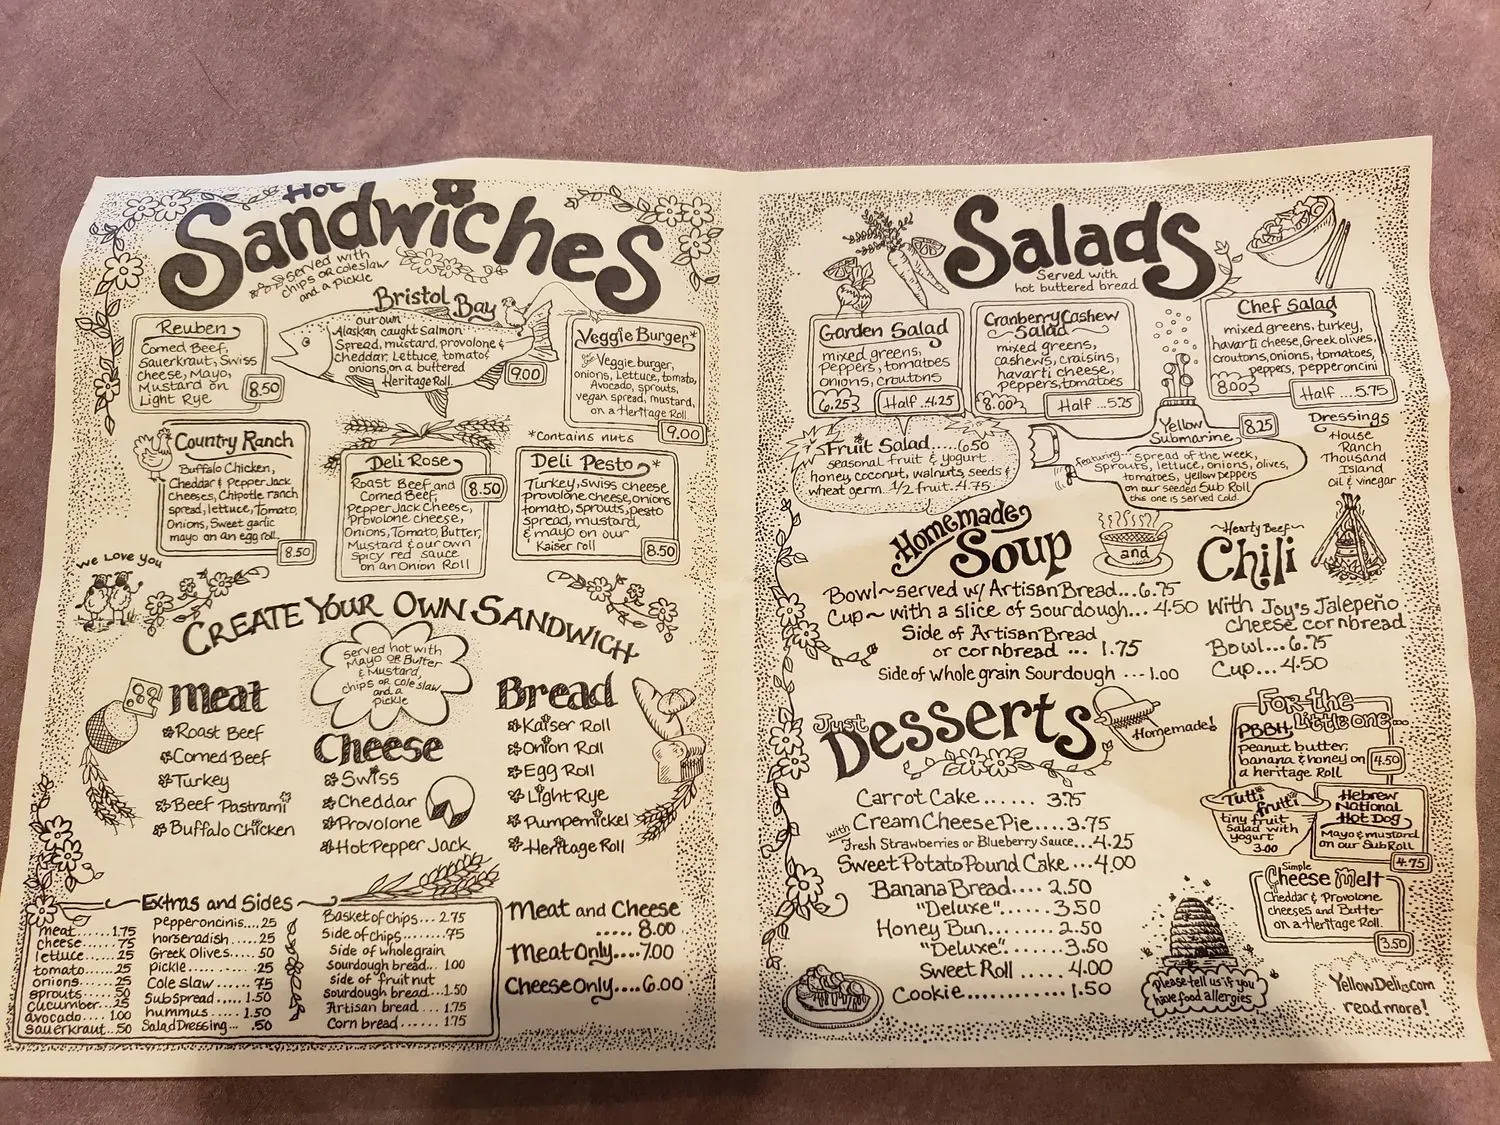 Hot
Sandwiches
served with
chips OR coleslaw
and a pickle
Reuben
Corned Beef,
Sauerkraut, Swiss
Cheese, Mayo,
Mustard on
Light Rye
8.50
Bristol Bay
our own
Alaskan caught Salmon
Spread, mustard, provolone &
Cheddar, Lettuce, tomato,
onions, on a buttered
Heritage Roll.
9.00
Veggie Burger*
Veggie burger,
onions, Lettuce, tomato,
Avocado, sprouts,
vegan spread, mustard,
on a Heritage Roll
9.00
*Contains nuts
Country Ranch
Buffalo Chicken,
Cheddar & Pepper Jack
Cheeses, Chipotle ranch
spread, lettuce, Tomato,
Onions, Sweet garlic
mayo on an egg roll.
8.50
Deli Rose
Roast Beef and
Corned Beef,
Pepper Jack Cheese,
Provolone cheese,
Onions, Tomato, Butter,
Mustard & our own
spicy red sauce
on an Onion Roll
8.50
Deli Pesto*
Turkey, swiss cheese
provolone cheese, onions
tomato, sprouts, pesto
spread, mustard,
& mayo on our
Kaiser roll
8.50
We Love You
Create Your Own Sandwich
served hot with
Mayo OR Butter
& Mustard,
chips OR coleslaw
and a
pickle
Meat
Roast Beef
Corned Beef
Turkey
Beef Pastrami
Buffalo Chicken
Cheese
Swiss
Cheddar
Provolone
Hot Pepper Jack
Bread
Kaiser Roll
Onion Roll
Egg Roll
Light Rye
Pumpernickel
Heritage Roll
Extras and Sides
meat......1.75
cheese.....75
lettuce.....25
tomato.....25
onions.....25
sprouts....
cucumber..25
avocado...1.00
sauerkraut..50
pepperoncinis...25
horseradish....25
Greek Olives....50
pickle..........25
Cole slaw....75
Subspread.....1.50
hummus.....1.50
Salad Dressing....50
Basket of chips...2.75
side of chips.....75
Side of wholegrain
sourdough bread...1.00
side of fruit nut
sourdough bread...1.50
Artisan bread....1.75
Corn bread....1.75
Meat and Cheese
.....8.00
Meat Only....7.00
Cheese Only....6.00
Salads
Served with
hot buttered bread
Garden Salad
mixed greens,
Peppers, tomatoes
onions, croutons
6.25
Half..4.25
Cranberry Cashew
Salad
mixed greens,
cashews, craisins,
havarti cheese,
peppers, tomatoes
8.00
Half...5.25
Chef Salad
mixed greens, turkey,
havarti cheese, Greek olives,
croutons, onions, tomatoes,
peppers, pepperoncini
8.00
Half....5.75
Fruit Salad.....6.50
seasonal fruit & yogurt
honey, coconut, walnuts, seeds &
wheat germ. 1/2 fruit.4.75
Yellow
Submarine
8.25
featuring... spread of the week,
sprouts, lettuce, onions, olives,
tomatoes, yellow peppers
on our seeded Sub Roll
this one is served cold.
Dressings
House
Ranch
Thousand
Island
Oil & vinegar
Homemade
Soup
and
~Hearty Beef~
Chili
Bowl~served w/ Artisan Bread...6.75
Cup~ with a slice of Sourdough...4.50
Side of Artisan Bread
or cornbread ... 1.75
Side of Whole grain Sourdough ...1.00
With Joy's Jalepeño
Cheese cornbread
Bowl...6.75
Cup...4.50
Just
Desserts
Homemade!
Carrot Cake...... 3.75
Cream Cheese Pie....3.75
with Fresh Strawberries or Blueberry Sauce...4.25
Sweet Potato Pound Cake...4.00
Banana Bread.... 2.50
"Deluxe"...... 3.50
Honey Bun...... 2.50
"Deluxe"...... 3.50
Sweet Roll .... 4.00
Cookie............1.50
For the
Little one...
PBBH
peanut butter,
banana & honey on
a heritage Roll
4.50
Tutti
frutti
tiny fruit
salad with
yogurt
3.00
Hebrew
National
Hot Dog
Mayo & mustard
on our Sub Roll
4.75
Simple
Cheese Melt
Cheddar & Provolone
cheeses and Butter
on a Heritage Roll.
3.50
please tell us if you
have food allergies
YellowDeli.com
read more!